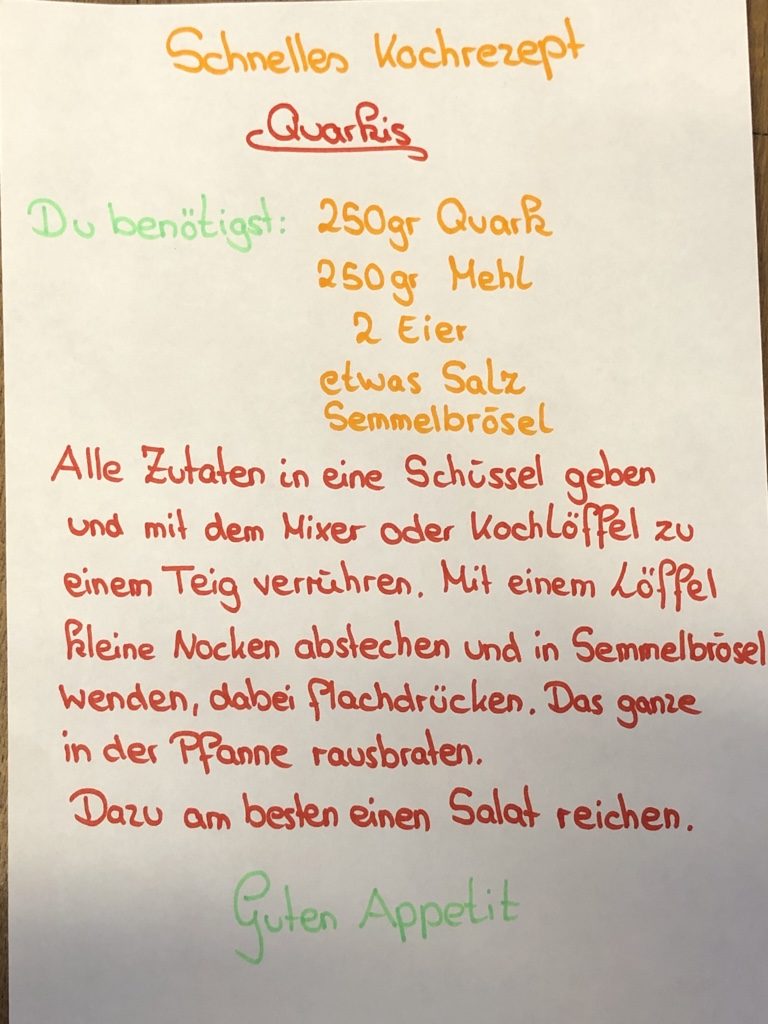 Schnelles Kochrezept
Quarkis
Du benötigst: 250gr Quark
250gr Mehl
2 Eier
etwas Salz
Semmelbrösel
Alle Zutaten in eine Schüssel geben
und mit dem Mixer oder Kochlöffel zu
einem Teig verrühren. Mit einem Löffel
kleine Nocken abstechen und in Semmelbrösel
wenden, dabei flachdrücken. Das ganze
in der Pfanne rausbraten.
Dazu am besten einen Salat reichen.
Guten Appetit